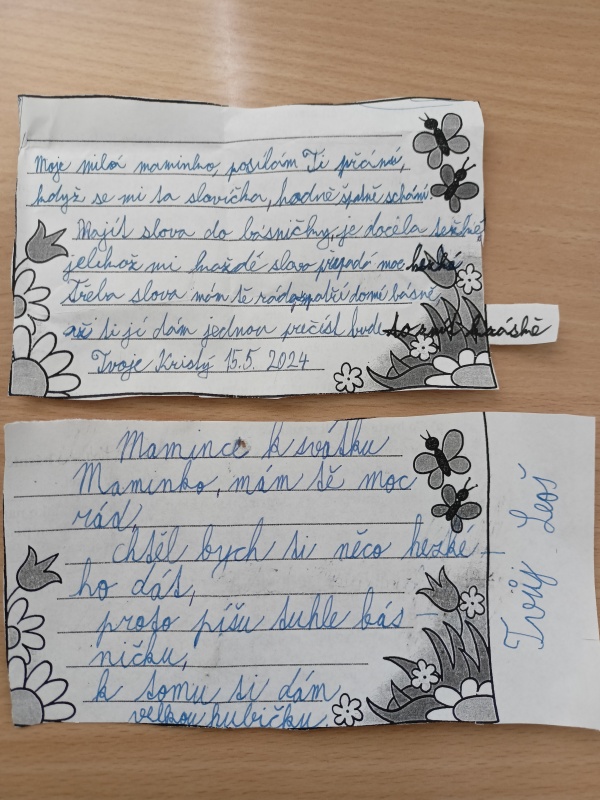 Moje milá maminko, posílám Ti přání,
když se mi ta slovíčka, hodně špatně schání.
Najít slova do básničky, je docela težké,
jelikož mi každé slovo připadá moc hezké
Třeba slova mám tě ráda, patří do mé básně
až ti jí dám jednou přečíst bude to znít krásně
Tvoje Kristý 15.5. 2024
Mamince k svátku
Maminko, mám tě moc
rád,
chtěl bych si něco hezké-
ho dát,
proto píšu tuhle bás-
ničku,
k tomu ti dám
velkou hubičku.
Tvůj Leoš